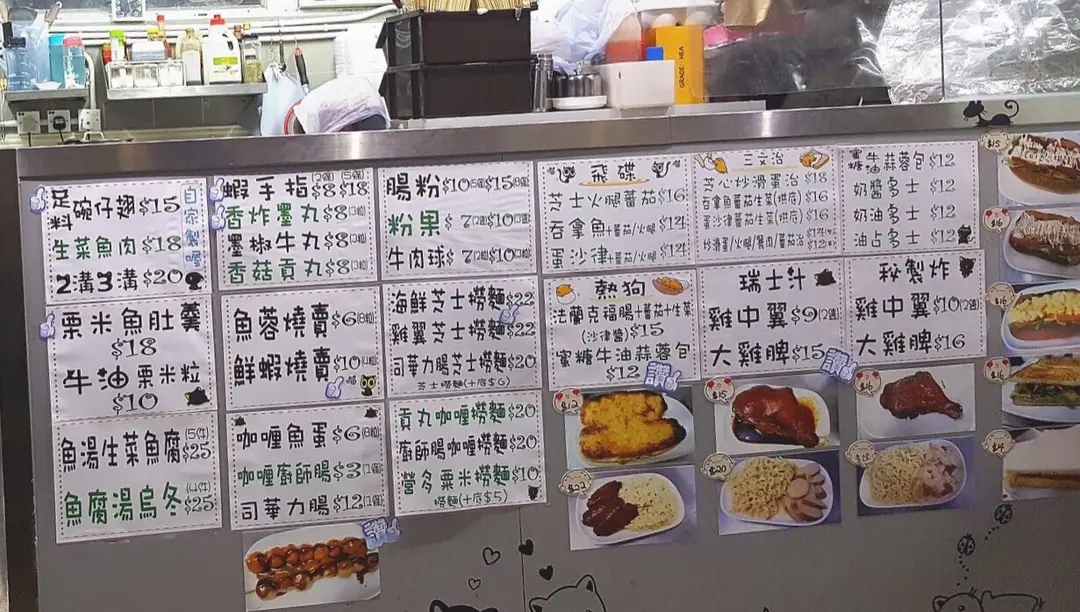 足料碗仔翅 $15
自家製喔
生菜魚肉 $18
2溝3溝 $20
栗米魚肚羹
$18
牛油栗米粒
$10
魚湯生菜魚腐 (5件) $25
魚腐湯烏冬 $25
蝦手指 $8 $18
香炸墨丸 $8
墨椒牛丸 $8
香菇貢丸 $8
魚蓉燒賣 $6
鮮蝦燒賣 $10
咖喱魚蛋 $6
咖喱廚師腸 $3
司華力腸 $12
腸粉 $10 $15
粉果 $7 $10
牛肉球 $7 $10
海鮮芝士撈麵 $22
雞翼芝士撈麵 $22
司華力腸芝士撈麵 $20
芝士撈麵(+底$6)
貢丸咖喱撈麵 $20
廚師腸咖喱撈麵 $20
營多栗米撈麵 $10
撈麵(+底$5)
飛碟
芝士火腿蕃茄 $16
吞拿魚+蕃茄/火腿 $14
蛋沙律+蕃茄/火腿 $14
熱狗
法蘭克福腸+蕃茄+生菜
(沙律醬) $15
蜜糖牛油蒜蓉包
$12
三文治
芝心炒滑蛋治 $18
吞拿魚蕃茄生菜(烘底) $16
蛋沙律蕃茄生菜(烘底) $16
炒滑蛋/火腿/餐肉/蕃茄治
瑞士汁
雞中翼 $9
大雞髀 $15
蜜糖牛油蒜蓉包 $12
奶醬多士 $12
奶油多士 $12
油占多士 $12
秘製炸
雞中翼 $10
大雞髀 $16
讚
讚
讚
$12
$15
$16
$22
$20
$15
$16
$16
$16
GRADE: HEA